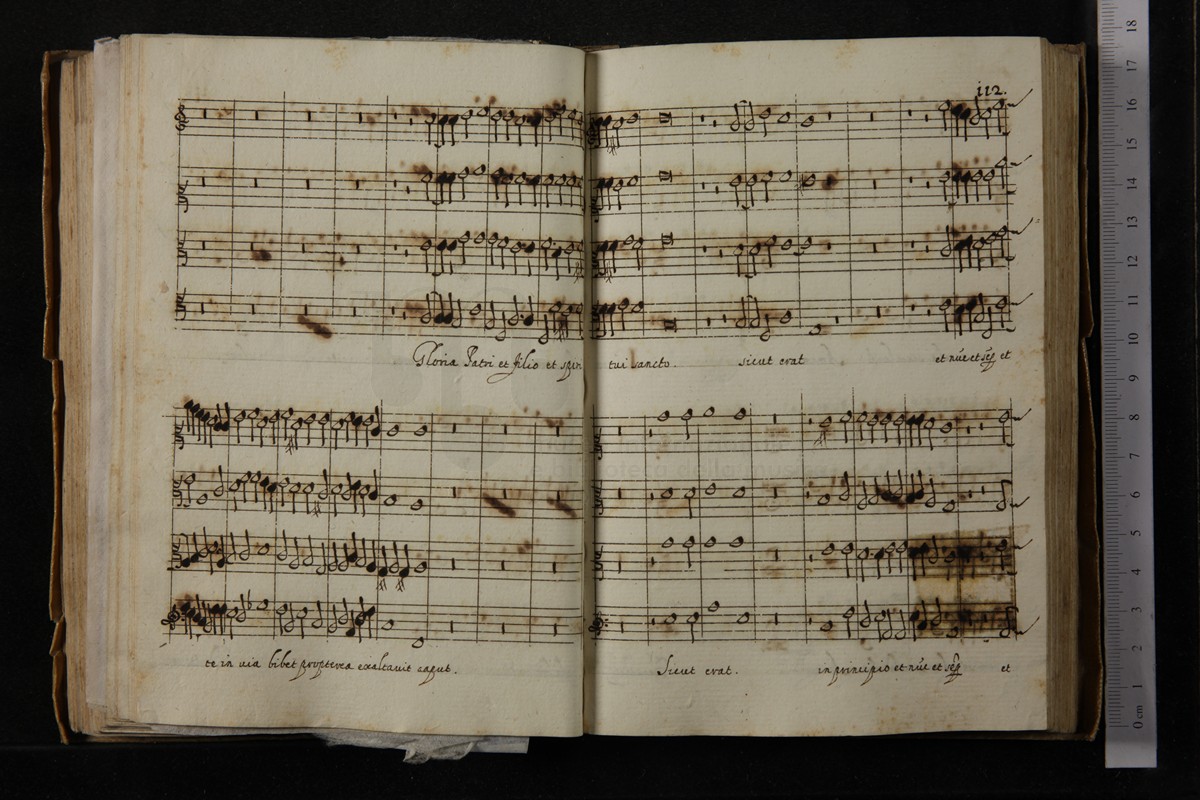 112.
Gloria Patri et filio et spiri tui sancto. sicut erat et nūc et sēp et
te in via bibet propterea exaltavit caput. Sicut erat. in principio et nūc et sēp et
biblioteca della musica
18 17 16 15 14 13 12 11 10 9 8 7 6 5 4 3 2 1 0 cm